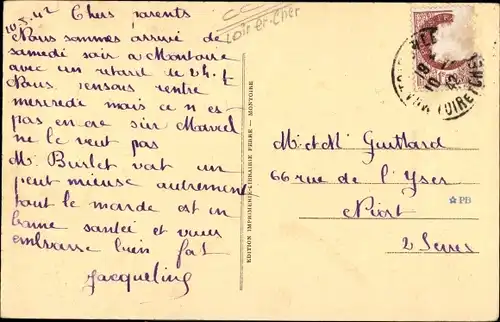 10.5.42
Chers parents
Nous sommes arrivé de
samedi soir a Montoire
avec un retard de 24.h
Nous pensons rentre
mercredi mais ce n es-
pas en cre sûr Marcel
ne le veut pas
M. Burlet vat un
peut mieuse autrement
tout le monde est in
bonne santée et vous
embrasse bien fat
Jacqueline
Loir-et-Cher
EDITION IMPRIMERIE-LIBRAIRIE FIERRE - MONTOIRE
M. et M. Guittard
66 rue de l'Yser
Niort
2 Sevres
PB